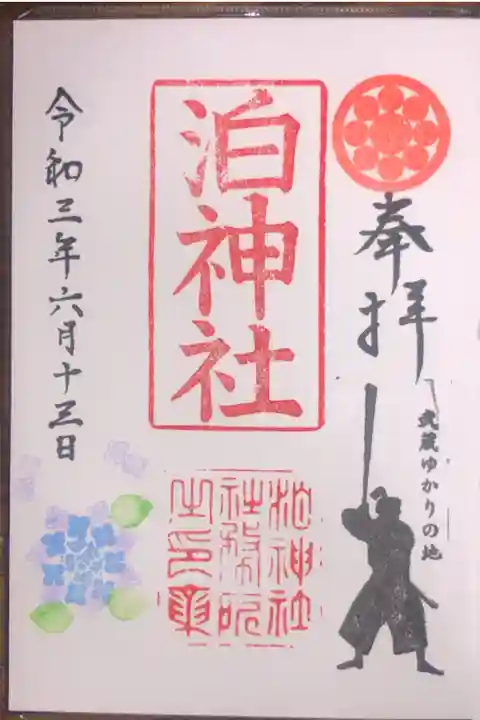 奉拝
武蔵ゆかりの地
泊神社
泊神社
社務所
之印章
令和三年六月十三日